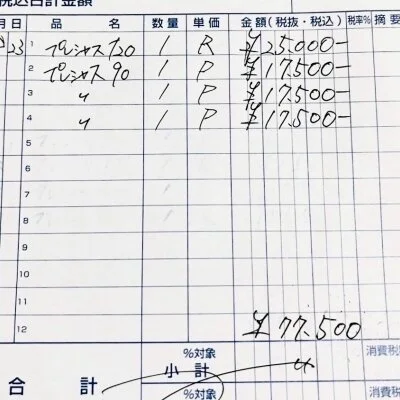 税込合計金額
月 日 品名 数量 単価 金額(税抜・税込) 税率% 摘要
23 1 プレシャス120 1 R ¥25.000-
2 プレシャス90 1 P ¥17.500-
3 〃 1 P ¥17.500-
4 〃 1 P ¥17.500-
5
6
7
8
9
10
11
12 ¥77.500
%対象 消費税
合計 小計 〃
%対象 消費税